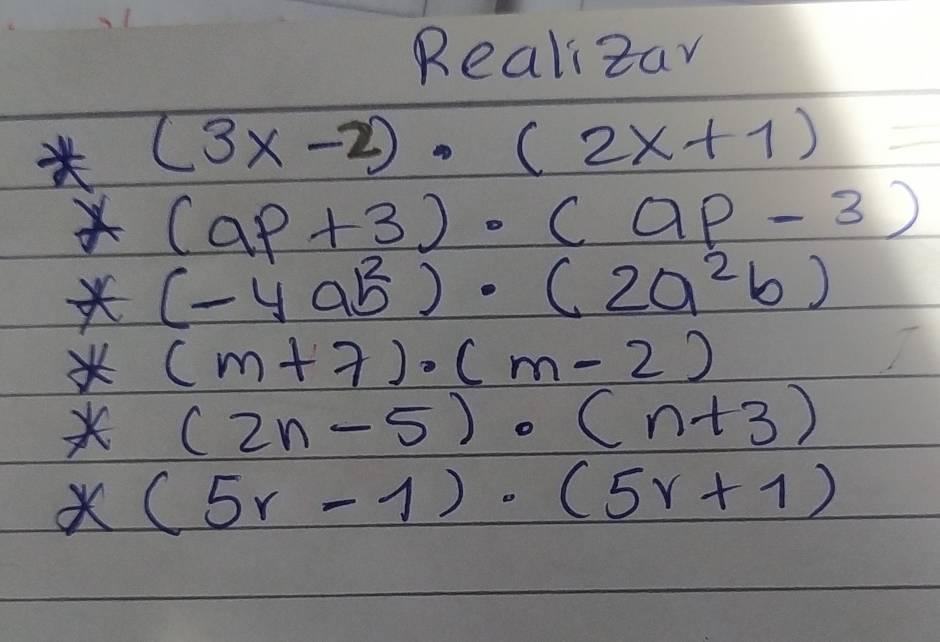 Realizar
* (3x-2) · (2x+1)
* (ap+3) · (ap-3)
* (-4ab²) · (2a²b)
* (m+7) · (m-2)
* (2n-5) · (n+3)
* (5r-1) · (5r+1)